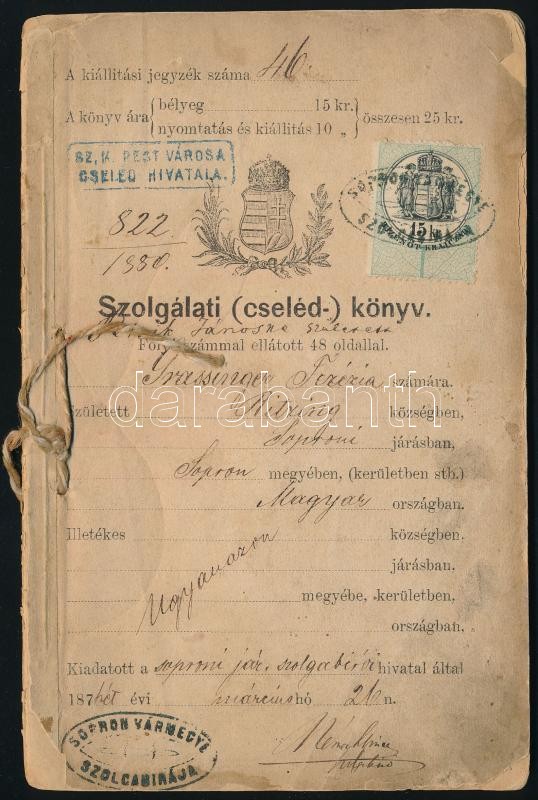 A kiállitási jegyzék száma 46
A könyv ára { bélyeg 15 kr. } összesen 25 kr.
nyomtatás és kiállitás 10 „
SZ. K. PEST VÁROSA
CSELÉD HIVATALA.
SOPRON VÁRMEGYE
15 kr
822
1880.
Szolgálati (cseléd-) könyv.
Jánosné született
Folyó számmal ellátott 48 oldallal.
Grassinger Terézia számára.
Született községben,
Soproni járásban,
Sopron megyében, (kerületben stb.)
Magyar országban.
Illetékes községben.
járásban.
Ugyanazon
megyébe, kerületben,
országban.
Kiadatott a soproni jár. szolgabírói hivatal által
187hét évi március hó 26 n.
SOPRON VÁRMEGYE
SZOLGABIRÁJA
darabanth